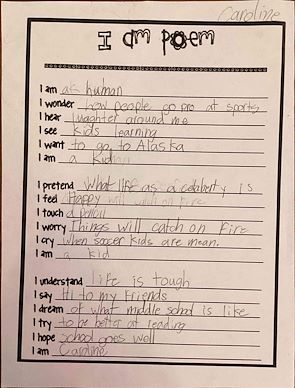 Caroline
I am Poem
I am a human
I wonder how people go pro at sports
I hear laughter around me
I see kids learning
I want to go to Alaska
I am a kid
I pretend what life as a celaberty is
I feel Happy
I touch a pencil
I worry Things will catch on Fire
I cry when soccer kids are mean.
I am a kid
I understand life is tough
I say Hi to my Friends
I dream of what middle school is like
I try to be better at reading
I hope school goes well
I am Caroline